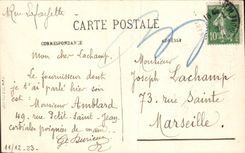 Rue Lafayette
CARTE POSTALE
CORRESPONDANCE
ADRESSE
Mon cher Lachamp.
Le fournisseur dont
je t'ai parlé hier soir
est
Monsieur Amblard
49, rue Petit-Saint-Jean
cordiales poignées de main.
11/12.23.
Monsieur
Joseph Lachamp
73, rue Sainte
Marseille.
10